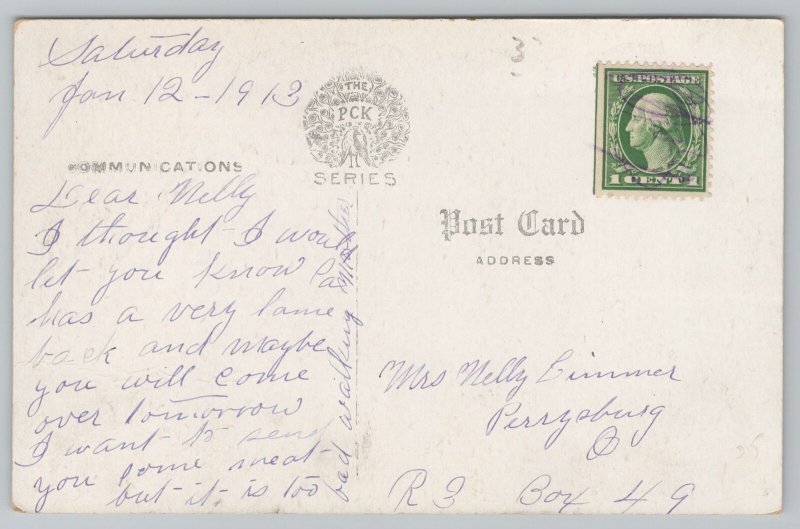 Saturday
Jan 12-1913
THE
PCK
SERIES
COMMUNICATIONS
Dear Nelly
I thought I would
let you know Pa
has a very lame
back and maybe
you will come
over tomorrow
I want to send
you some meat
but it is too
bad walking Mother
U.S. POSTAGE
1 CENT 1
Post Card
ADDRESS
Mrs Nelly Limmer
Perrysburg
O
R 3 Box 49